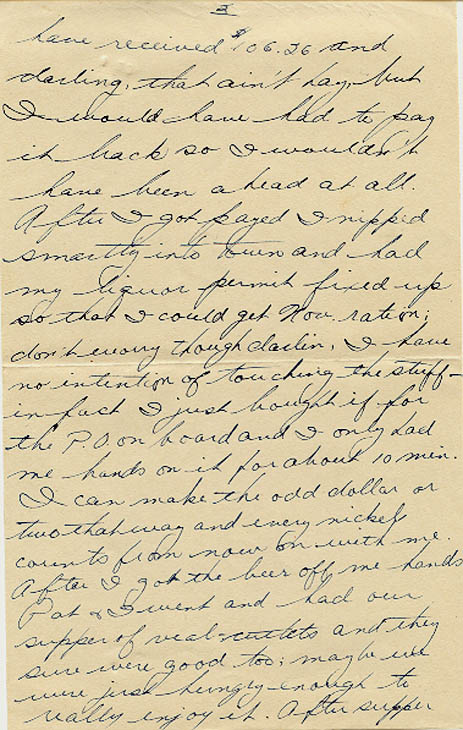 3
have received $106.26 and
darling, that ain't hay, but
I would have had to pay
it back so I wouldn't
have been ahead at all.
After I got payed I nipped
smartly into town and had
my liquor permit fixed up
so that I could get Nov. ration;
don't worry though darlin, I have
no intention of touching the stuff –
in fact I just bought if for
the P.O. on board and I only had
me hands on it for about 10 min.
I can make the odd dollar or
two that way and every nickel
counts from now on with me.
After I got the beer off me hands
Pat & I went and had our
supper of veal-cutlets and they
sure were good too; maybe we
were just hungry enough to
really enjoy it. After supper